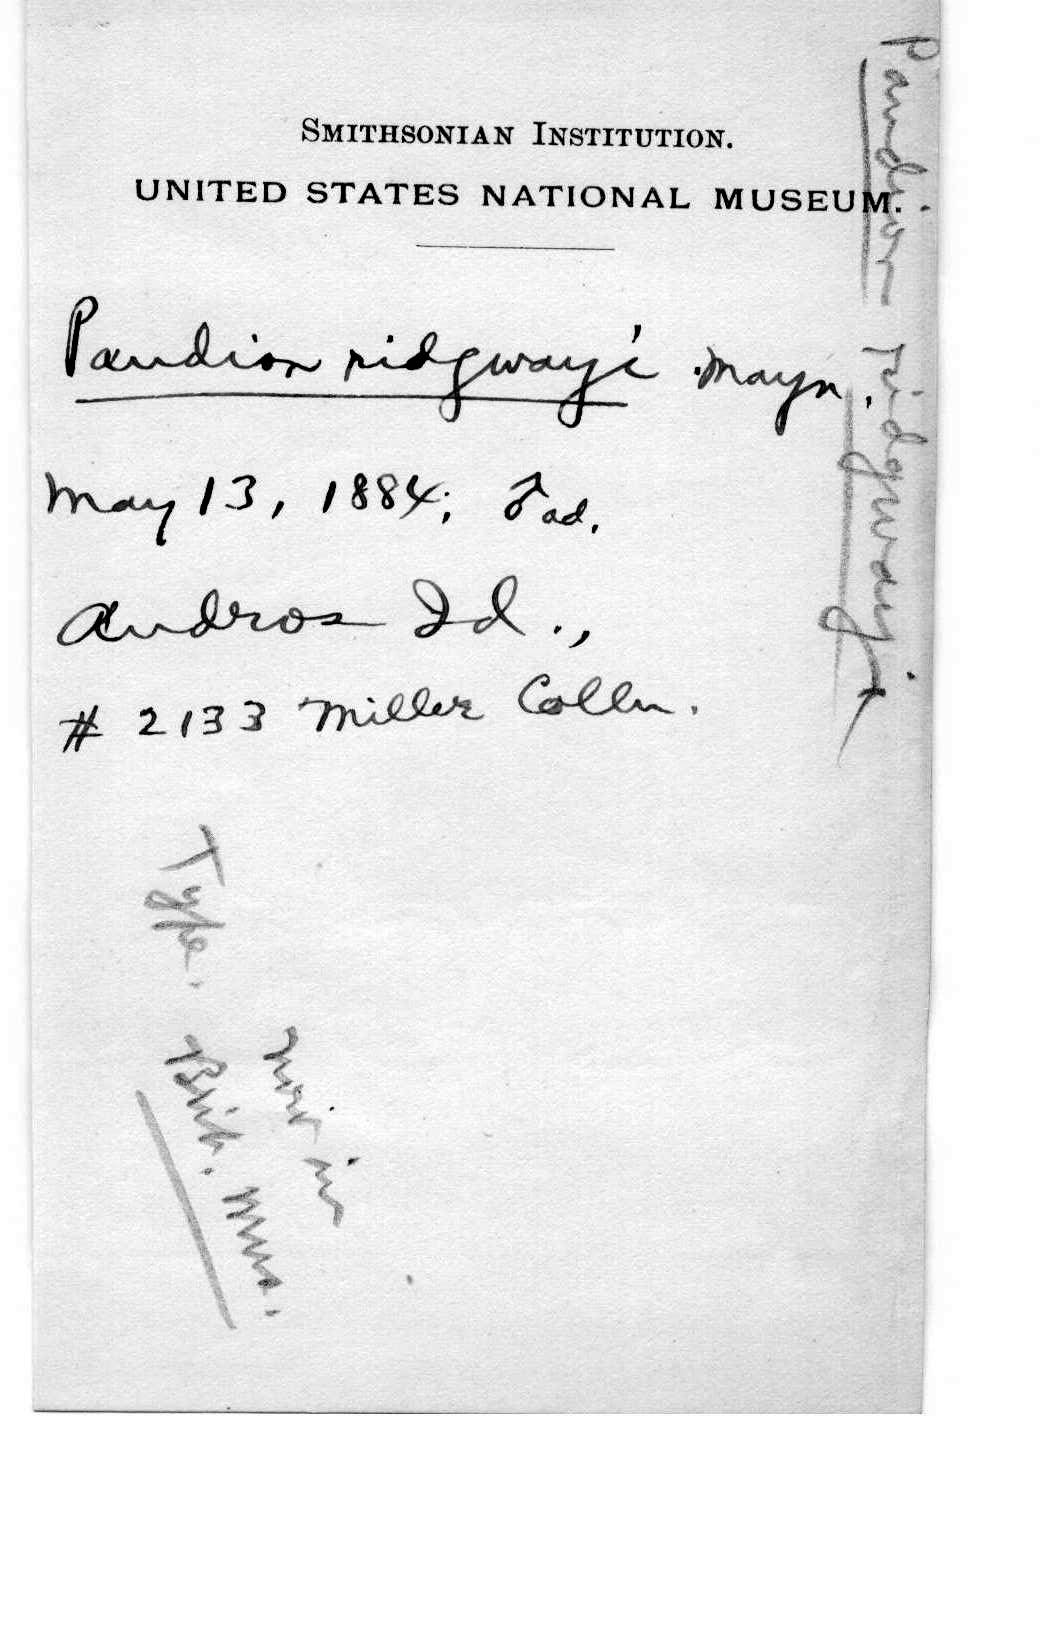 SMITHSONIAN INSTITUTION.
UNITED STATES NATIONAL MUSEUM.
Pandion ridgwayi Mayn.
May 13, 1884; ♂ ad.
Andros Id.,
# 2133 Miller Colln.
Pandion ridgwayi
Type.
now in
Brit. Mus.